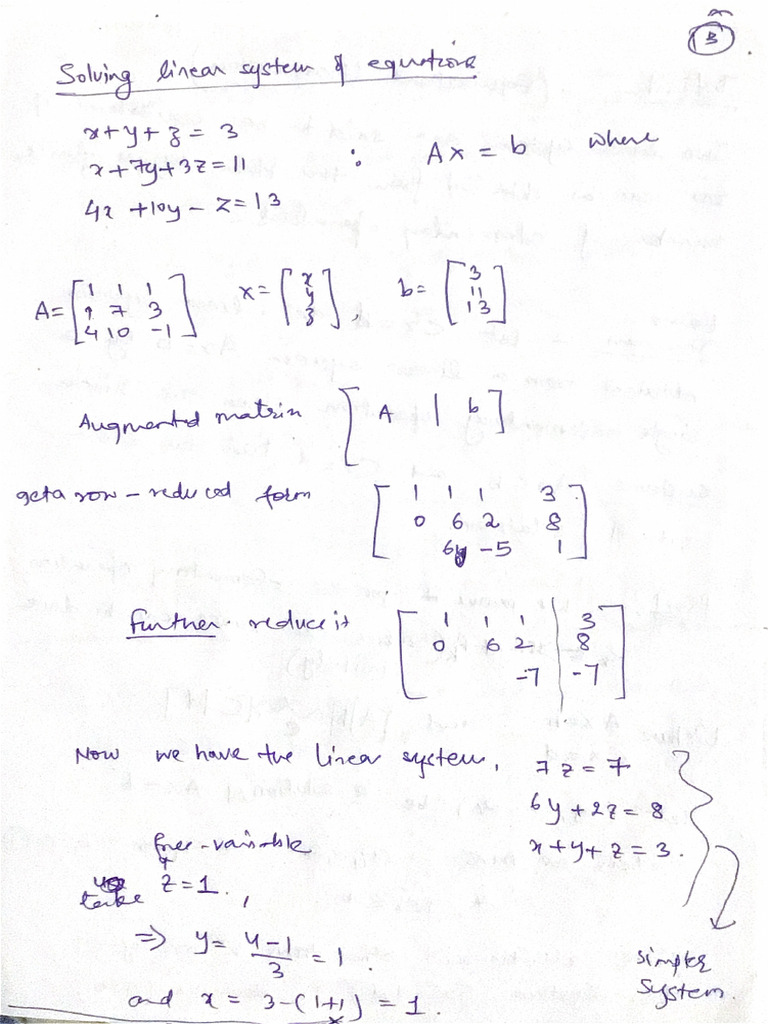 3
Solving linear system of equations
x+y+z = 3
x+7y+3z=11 : Ax = b where
4x +10y - z=13
A= [1 1 1 x= [x b= [3
1 7 3 y 11
4 10 -1] z], 13]
Augmented matrix [ A | b ]
get a row-reduced form [ 1 1 1 3
0 6 2 8
6 -5 1 ]
Further reduce it [ 1 1 1 | 3
0 6 2 | 8
-7 | -7 ]
Now we have the linear system, 7z = 7
6y + 2z = 8
x+y+z = 3.
free-variable
take z=1.,
⇒ y= 4-1/3 = 1.
simpler
system.
and x = 3-(1+1) = 1.